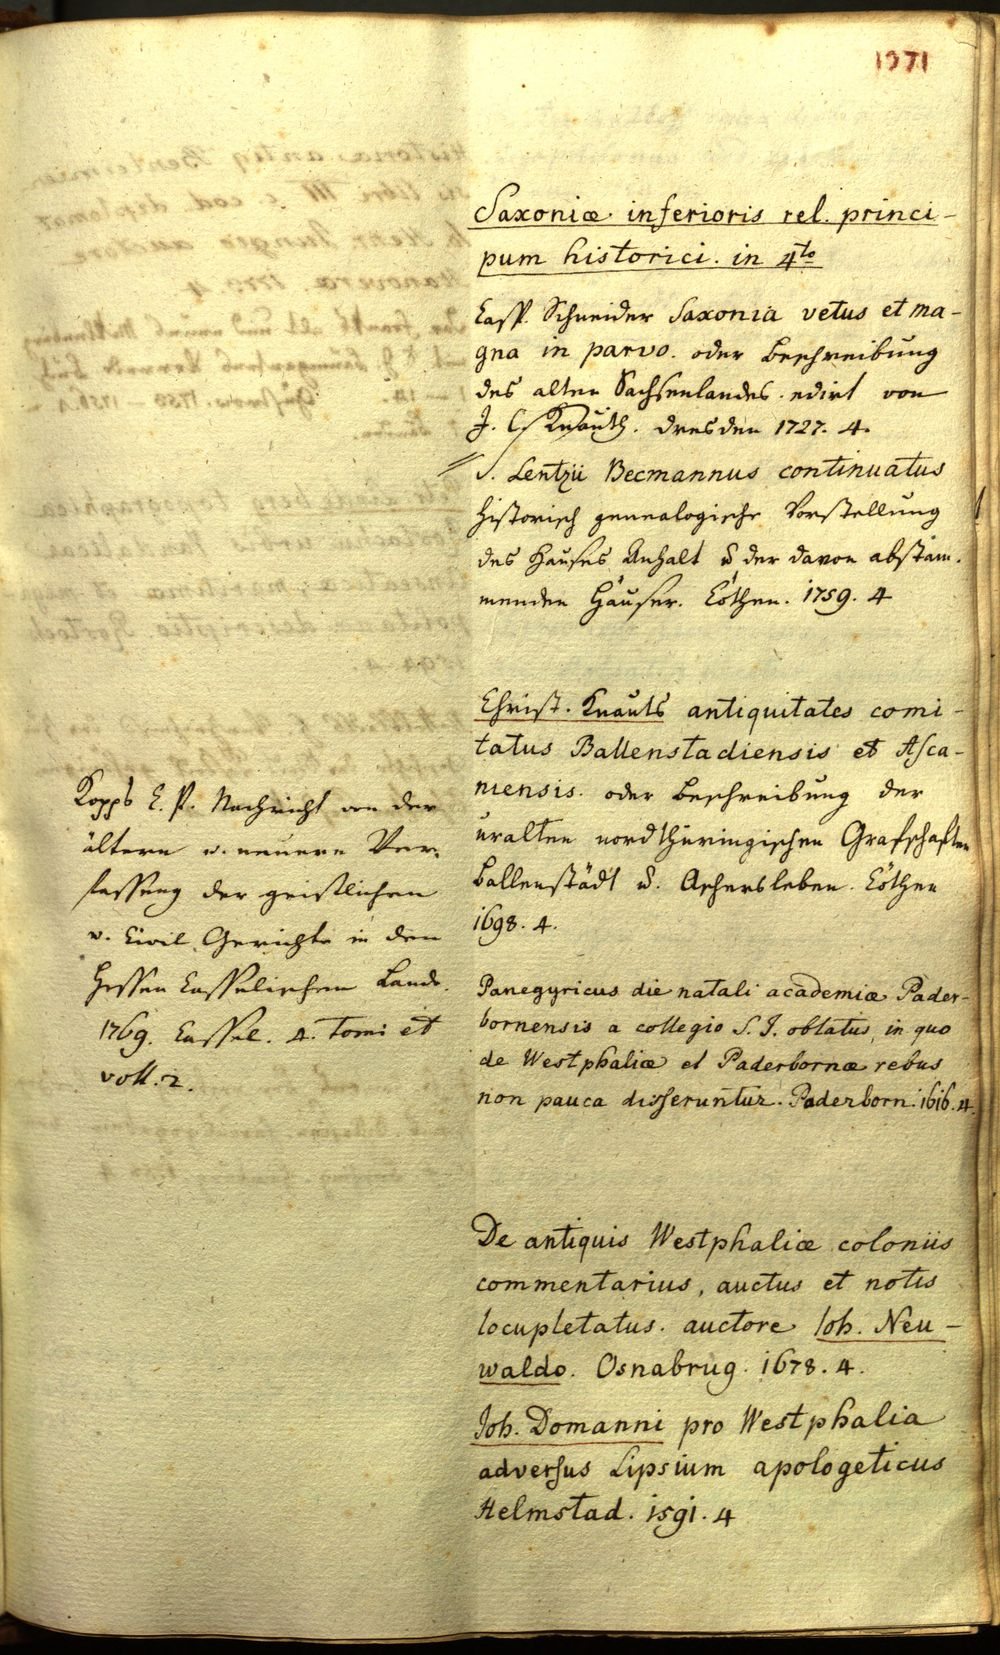 1371
Saxoniæ inferioris rel. princi-
pum historici. in 4to
Casp. Schneider Saxonia vetus et ma-
gna in parvo. oder Beschreibung
des alten Sachsenlandes. edirt von
J. C. Knauth. Dresden 1727. 4.
S. Lentzii Becmannus continuatus
historisch genealogische Vorstellung
des Hauses Anhalt u. der davon abstam-
menden Häuser. Cöthen. 1759. 4
Christ. Knauts antiquitates comi-
tatus Ballenstadiensis et Asca-
niensis. oder Beschreibung der
uralten nordthüringischen Grafschaften
Ballenstädt u. Aschersleben. Cöthen
1698. 4.
Kopps C. P. Nachricht von der
ältern u. neuern Ver-
fassung der geistlichen
u. Civil Gerichte in den
Hessen Casselischen Lande.
1769. Cassel. 4. Tomi et
voll. 2.
Panegyricus die natali academiæ Pader-
bornensis a collegio S. J. oblatus, in quo
de Westphaliæ et Paderbornæ rebus
non pauca disseruntur. Paderborn. 1616. 4.
De antiquis Westphaliæ coloniis
commentarius, auctus et notis
locupletatus. auctore Joh. Neu-
waldo. Osnabrug. 1678. 4.
Joh. Domanni pro Westphalia
adversus Lipsium apologeticus
Helmstad. 1591. 4